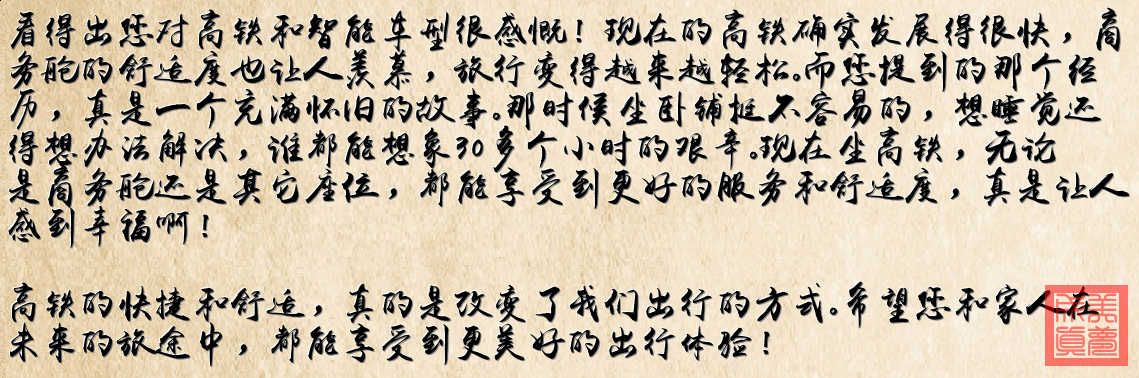 看得出您对高铁和智能车型很感慨！现在的高铁确实发展得很快，商
务舱的舒适度也让人羡慕，旅行变得越来越轻松。而您提到的那个经
历，真是一个充满怀旧的故事。那时候坐卧铺挺不容易的，想睡觉还
得想办法解决，谁都能想象30多个小时的艰辛。现在坐高铁，无论
是商务舱还是其它座位，都能享受到更好的服务和舒适度，真是让人
感到幸福啊！
高铁的快捷和舒适，真的是改变了我们出行的方式。希望您和家人在
未来的旅途中，都能享受到更美好的出行体验！
美梦
成真